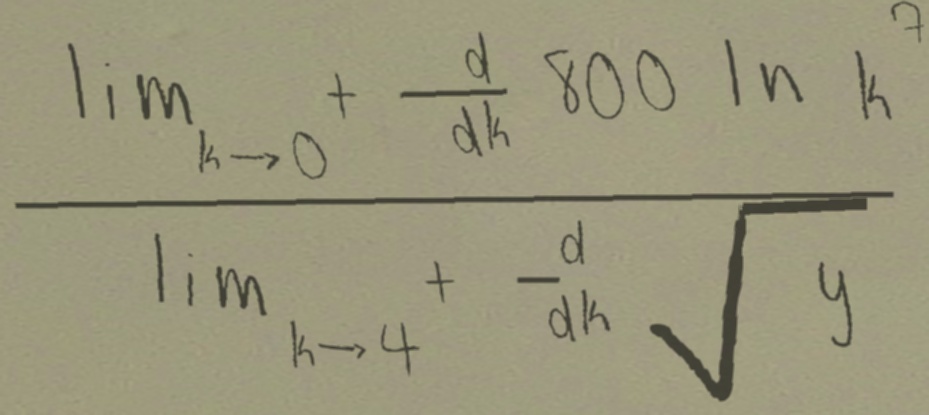 lim k→0⁺ d/dk 800 ln k⁷
lim k→4⁺ d/dk √y